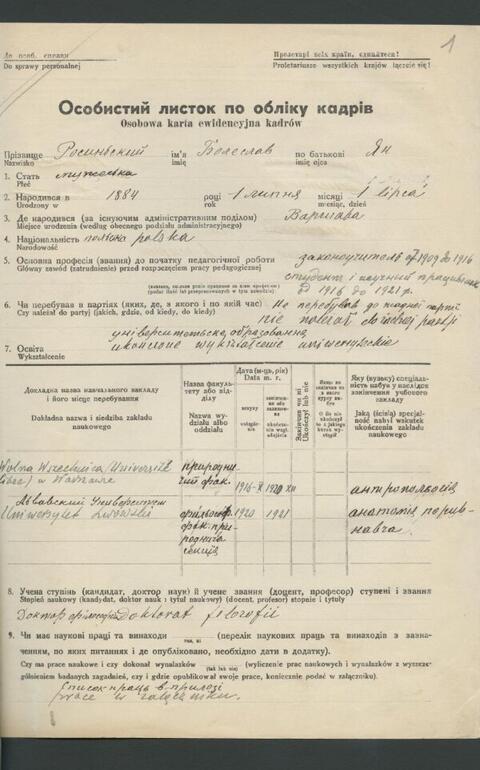 До особ. справи
Do sprawy personalnej
Пролетарі всіх країн, єднайтеся!
Proletariusze wszystkich krajów łączcie się!
1
Особистий листок по обліку кадрів
Osobowa karta ewidencyjna kadrów
Прізвище Росиньский ім'я Болеслав по батькові Ян
Nazwisko imię imię ojca
1. Стать мужська
Płeć
2. Народився в 1884 році 1 липня місяці 1 lipca
Urodzony w rok miesiąc, dzień
3. Де народився (за існуючим адміністративним поділом) Варшава
Miejsce urodzenia (według obecnego podziału administracyjnego)
4. Національність polska
Narodowość
5. Основна професія (звання) до початку педагогічної роботи законоучитель од 1909 до 1916
Główny zawód (zatrudnienie) przed rozpoczęciem pracy pedagogicznej студент і научний працівник
од 1916 до 1921 р.
6. Чи перебував в партіях (яких, де, з якого і по якій час) Не перебував до жадної партії
Czy należał do party] (jakich, gdzie, od kiedy, do kiedy) nie należał do żadnej partji
університетське образование
7. Освіта ukończone wykształcenie uniwersyteckie
Wykształcenie
Докладна назва навчального закладу і його місце перебування
Dokładna nazwa i siedziba zakładu naukowego
Назва факультету або відділу
Nazwa wydziału albo oddziału
Дата (м-ць, рік)
Data m. r.
вступу
wstąpienie
Закінчив чи ні
Ukończył lub nie
Яку (вузьку) спеціальність набув у наслідок закінчення учбового закладу
Jaką (ścisłą) specjalność nabył wskutek ukończenia zakładu
Wolna Wszechnica (Uniwersit
libre) w Warszawie
природничий фак. 1916-X 1920 XII антропологія
Львовський Университет
Uniwersytet Lwowski
филозоф. фак. природнича секция 1920 1921 анатомія порівнавча
8. Учена ступінь (кандидат, доктор наук) й учене звання (доцент, професор) ступені і звання
Stopień naukowy (kandydat, doktor nauk i tytuł naukowy) (docent, profesor) stopnie i tytuły
Доктор філозофії doktorat filozofii
9. Чи має наукові праці та винаходи (перелік наукових праць та винаходів з зазначенням, по яких питаннях і де опубліковано, необхідно дати в додатку).
Czy ma prace naukowe i czy dokonał wynalazków (tak lub nie) (wyliczenie prac naukowych i wynalazków z wyszczególnieniem badanych zagadnień, czy i gdzie opublikował swoje prace, koniecznie podać w załączniku).
Список праць в прилозі
prace w załączniku.